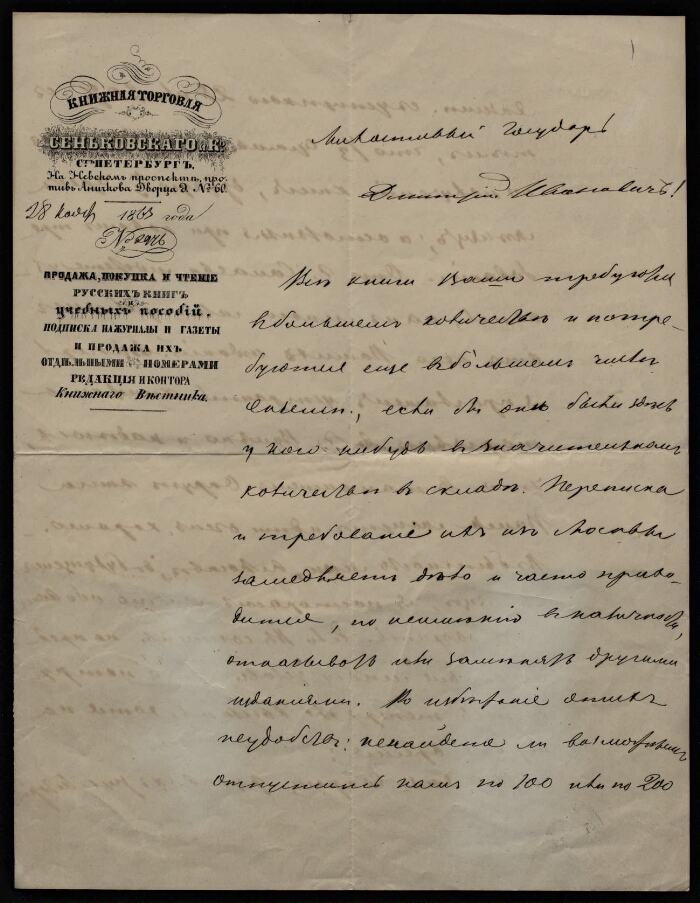 КНИЖНАЯ ТОРГОВЛЯ
СЕНЬКОВСКАГО и Кº
Ст ПЕТЕРБУРГЪ.
На Невскомъ проспектѣ, про-
тивъ Аничкова Дворца д. № 60.
28 Нояб 1863 года
№
ПРОДАЖА, ПОКУПКА И ЧТЕНІЕ
РУССКИХЪ КНИГЪ
И
УЧЕБНЫХЪ ПОСОБІЙ.
ПОДПИСКА НА ЖУРНАЛЫ И ГАЗЕТЫ
И ПРОДАЖА ИХЪ
ОТДѢЛЬНЫМИ НОМЕРАМИ
РЕДАКЦІЯ И КОНТОРА
Книжнаго Вѣстника.
Милостивый Государь
Дмитрій Ивановичъ!
Всѣ книги Ваши требуются
въ большемъ количествѣ и потре-
буются еще въ большемъ числѣ
если бъ онѣ были здѣсь
у кого нибудь въ значительномъ
количествѣ въ складѣ. Переписка
и требованіе ихъ изъ Москвы
замедляетъ дѣло и часто прихо-
дится, по неимѣнію въ наличности,
отказывать или замѣнять другими
изданіями. Во избѣжаніе этихъ
неудобствъ: не найдете ли возможнымъ
отпустить намъ по 100 или по 200